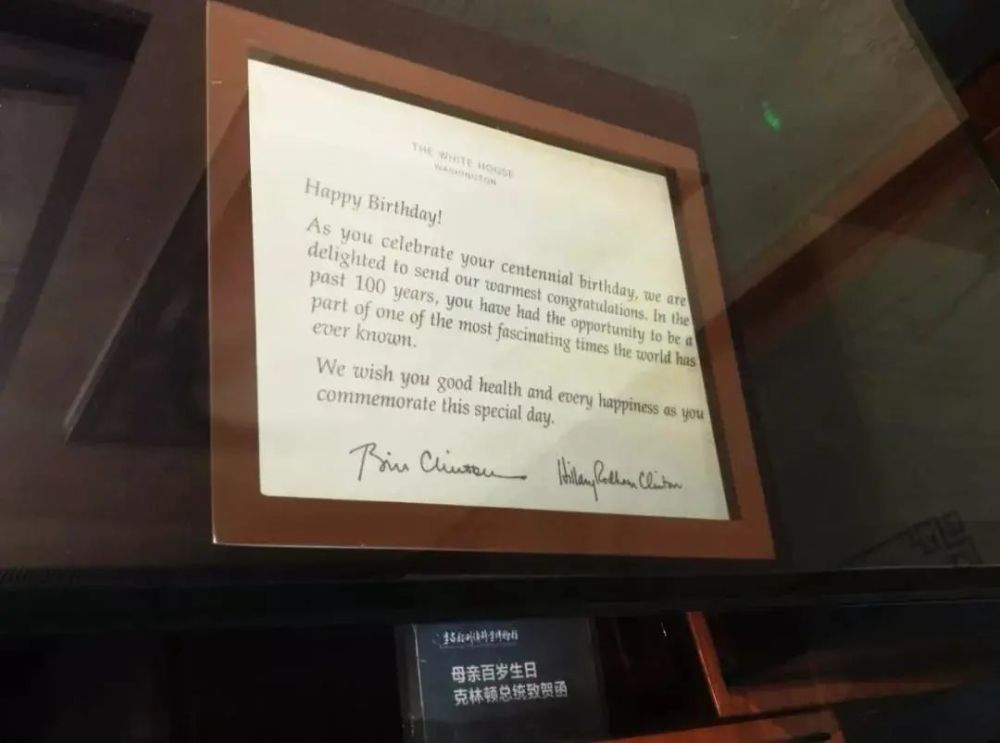 THE WHITE HOUSE
WASHINGTON
Happy Birthday!
As you celebrate your centennial birthday, we are
delighted to send our warmest congratulations. In the
past 100 years, you have had the opportunity to be a
part of one of the most fascinating times the world has
ever known.
We wish you good health and every happiness as you
commemorate this special day.
Bill Clinton Hillary Rodham Clinton
母亲百岁生日
克林顿总统致贺函